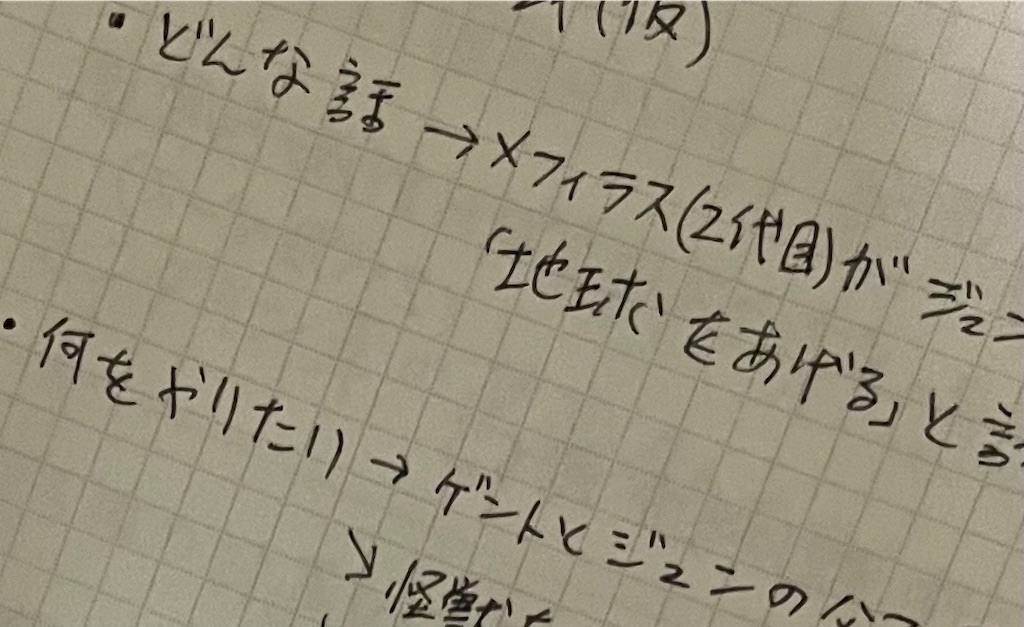 (仮)
・どんな話→メフィラス(2代目)がジュン
「地球をあげる」と言
・何をやりたい→ゲントとジュンの
↘怪獣